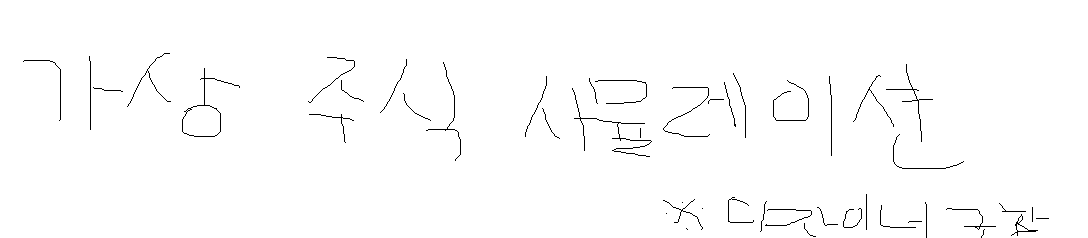 가상 주식 시뮬레이션
※ 디자이너 구함